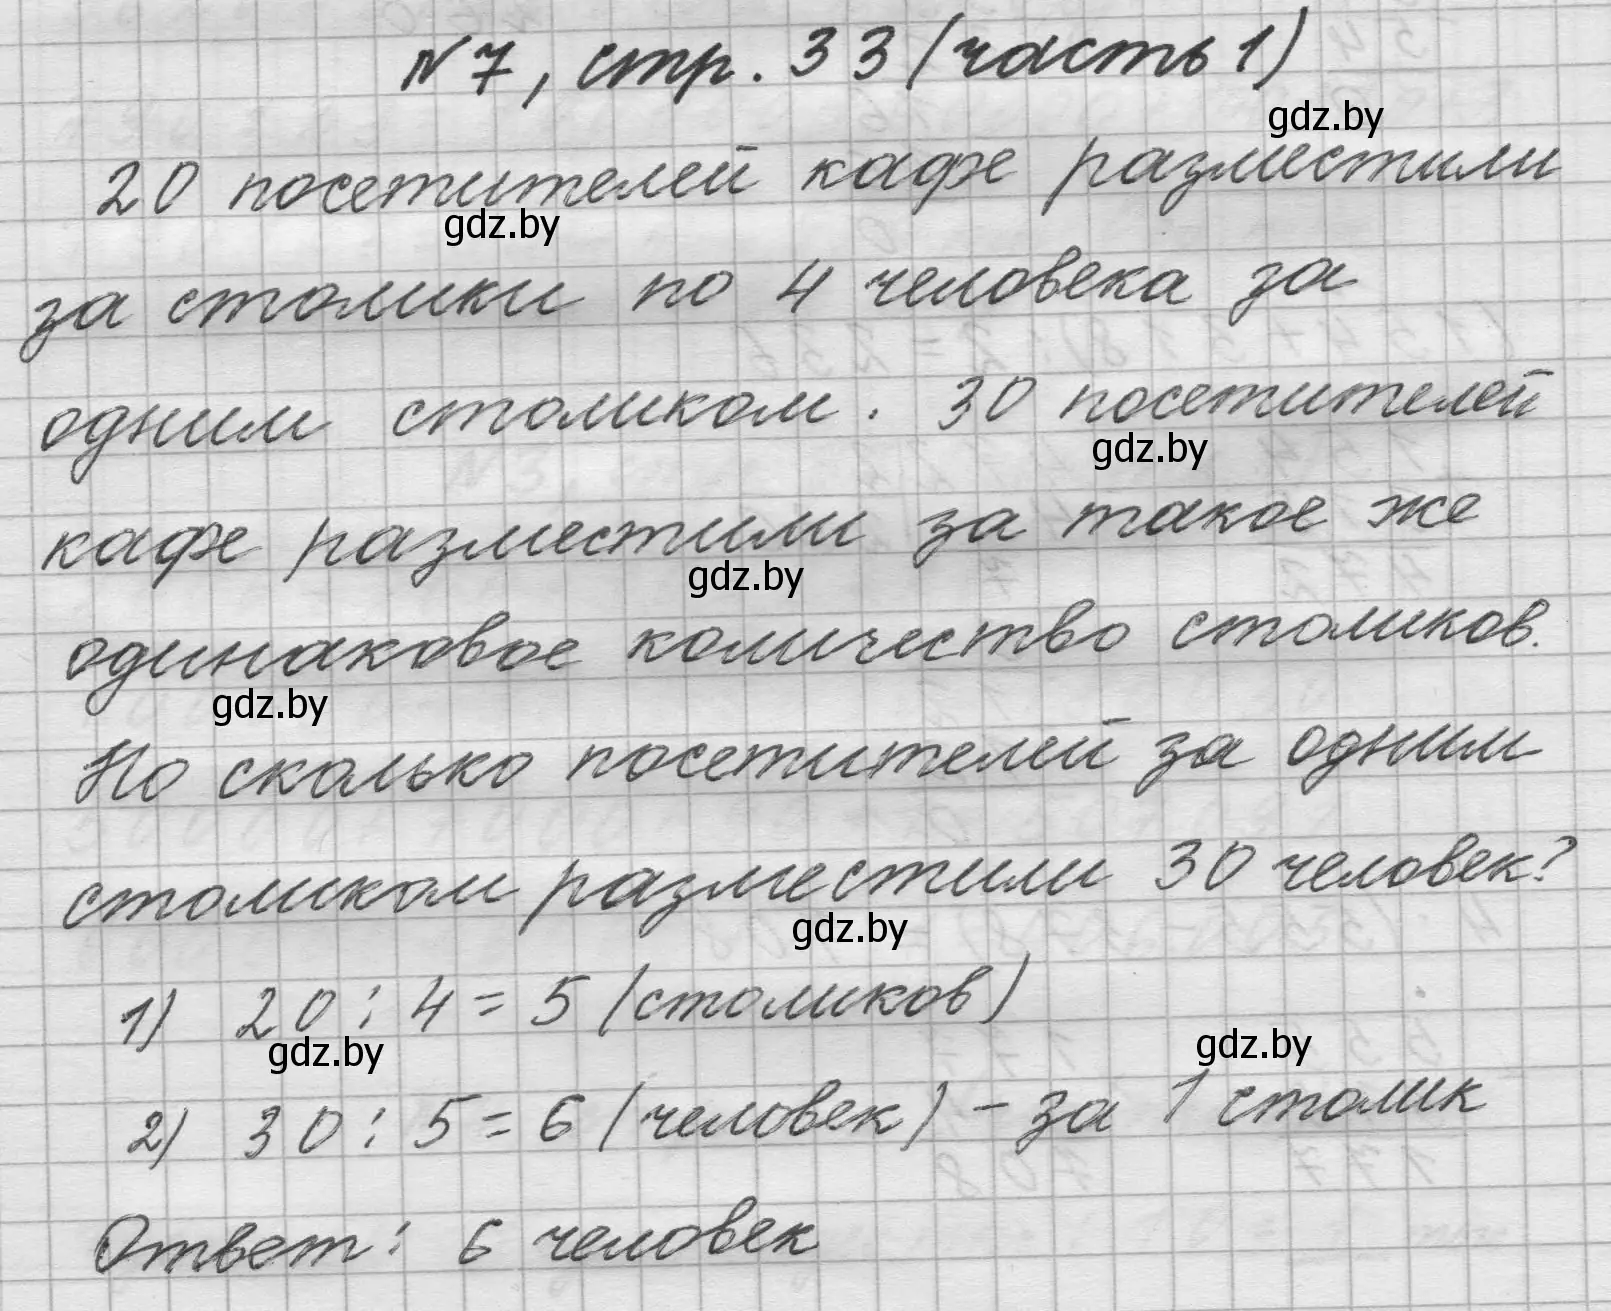 №7, стр. 33 (часть 1)
gdz.by
20 посетителей кафе разместили
gdz.by
за столики по 4 человека за
одним столиком. 30 посетителей
gdz.by
кафе разместили за такое же
gdz.by
одинаковое количество столиков.
gdz.by
По сколько посетителей за одним
столиком разместили 30 человек?
gdz.by
1) 20 : 4 = 5 (столиков)
gdz.by gdz.by
2) 30 : 5 = 6 (человек) – за 1 столик
Ответ: 6 человек